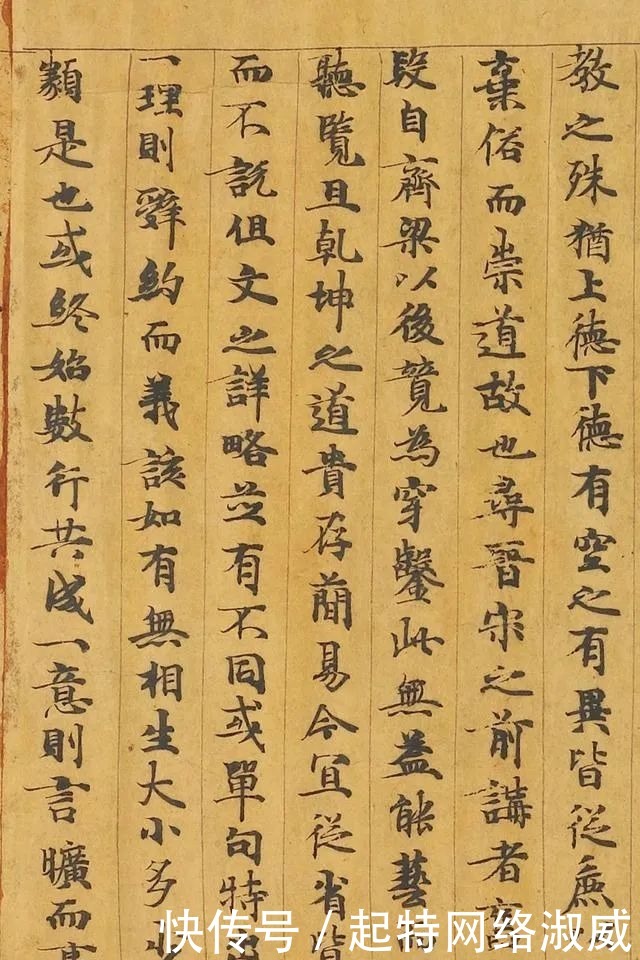 教之殊猶上德下德有空之有異皆從麁
棄俗而崇道故也尋晉宋之前講者
段自齊梁以後競為穿鑿此無益能藝而
聽覽且乾坤之道貴存簡易今宜從省皆
而不說但文之詳略並有不同或單句特
一理則辭約而義該如有無相生大小多少
類是也或終始數行共成一意則言曠而
快传号 / 起特网络淑威